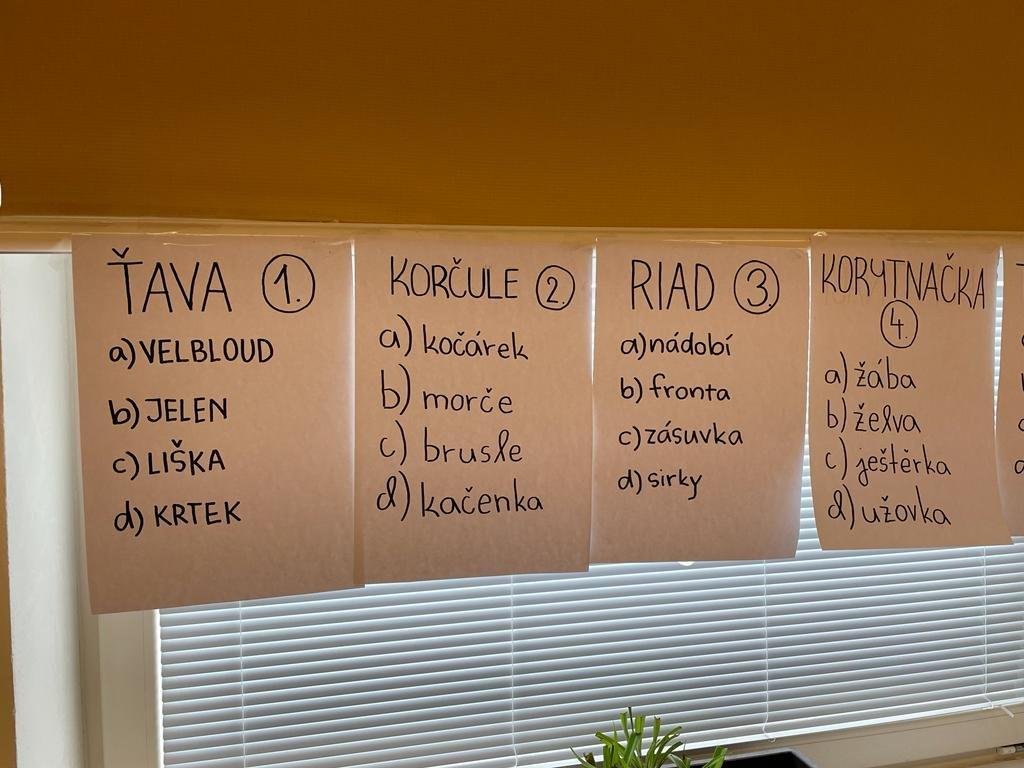 ŤAVA 1.
a) VELBLOUD
b) JELEN
c) LIŠKA
d) KRTEK
KORČULE 2.
a) kočárek
b) morče
c) brusle
d) kačenka
RIAD 3.
a) nádobí
b) fronta
c) zásuvka
d) sirky
KORYTNAČKA
4.
a) žába
b) želva
c) ještěrka
d) užovka